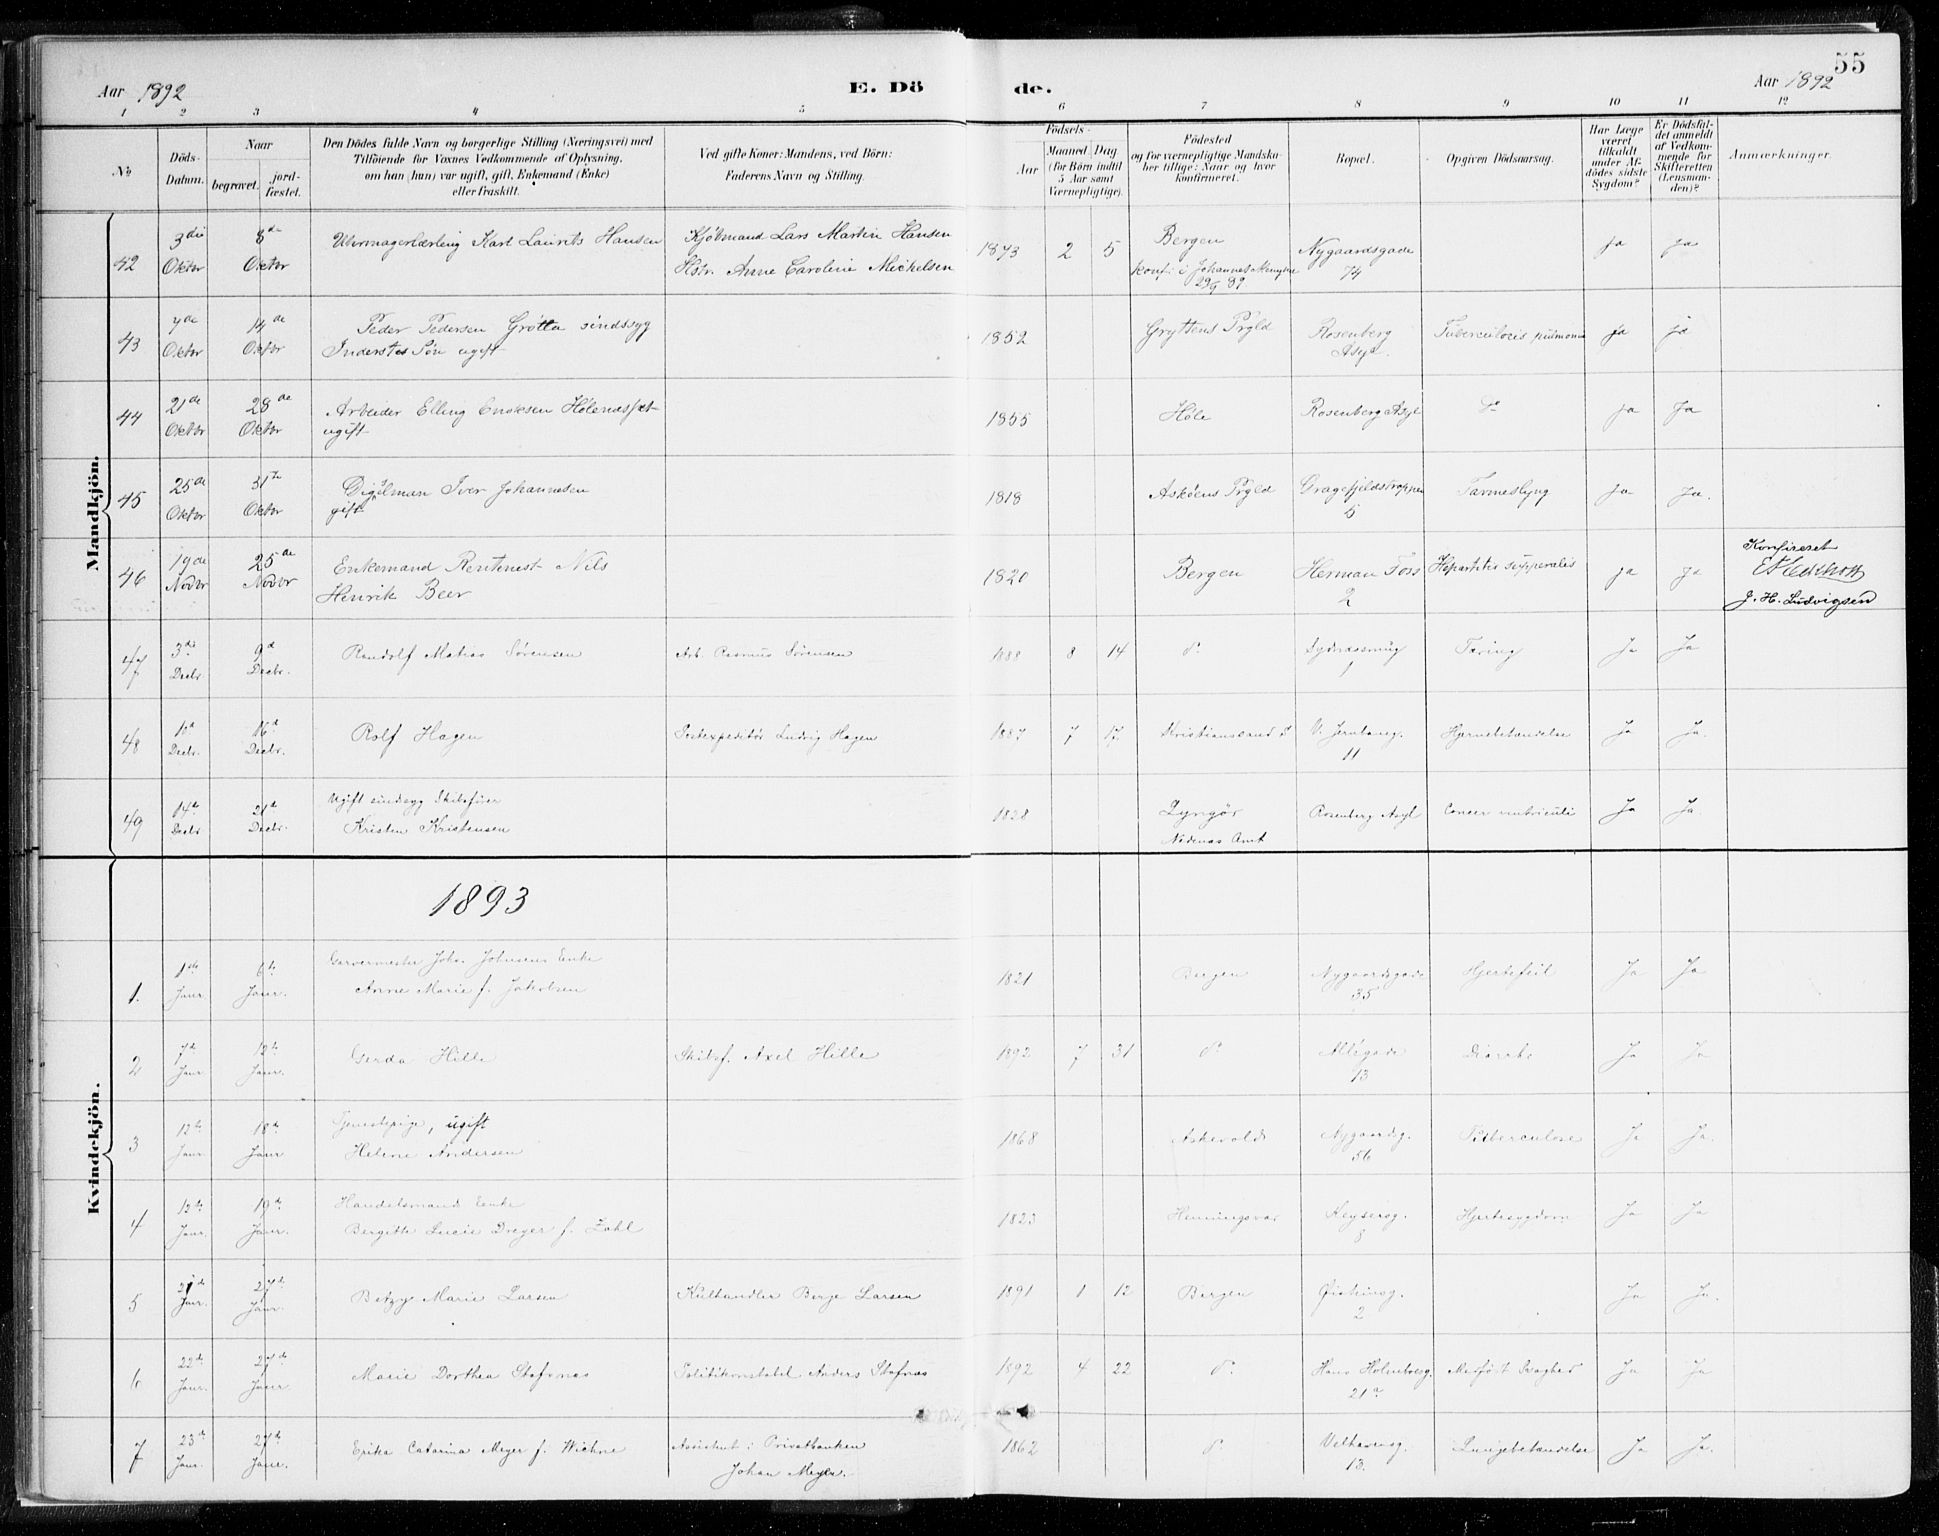 55
Aar 1892 E. Dö de. Aar 1892
1 2 3 4 5 6 7 8 9 10 11 12
No
Döds-Datum.
Naar
begravet. jordfæstet.
Den Dödes fulde Navn og borgerlige Stilling (Næringsvei) med
Tilföiende for Voxnes Vedkommende af Oplysning,
om han (hun) var ugift, gift, Enkemand (Enke)
eller fraskilt.
Ved gifte Koner: Mandens, ved Börn:
Faderens Navn og Stilling.
Födsels-
Aar Maaned. Dag
(for Börn indtil
5 Aar samt
Værnepligtige).
Födested
og for værnepligtige Mandska-
ber tillige: Naar og hvor
konfirmeret.
Bopæl.
Opgiven Dödsaarsag.
Har Læge
været
tilkaldt
under Af-
dödes sidste
Sygdom?
Er Dödsfal-
det anmeldt
af Vedkom-
mende for
Skifteretten
(Lensman-
den)?
Anmærkninger.
Mandkjön.
42 3die Oktbr 8de Oktbr Uhrmagerlærling Karl Laurits Hansen Kjöbmand Lars Martin Hansen
Hstr. Anne Caroline Michelsen 1873 2 5 Bergen
konf. i Johannes Menighe 29/9 89 Nygaardsgade 74 ja ja
43 7de Oktbr 14de Oktbr Peder Pedersen Grötta sindssyg
Inderstes Sön ugift 1852 Gryttens Prgld Rosenberg Asyl. Tuberculosis pulmonu ja ja
44 21de Oktbr 28de Oktbr Arbeider Elling Enoksen Hölendsfæt
ugift 1855 Höle Rosenberg Asyl do ja ja
45 25de Oktbr 31te Oktbr Iver Johannesen
gift 1818 Asköens Prgld 5 Tarmeslyng ja ja.
46 19de Novbr 25de Novbr Enkemand Rentnest Nils
Henrik Beer 1820 Bergen Herman Foss 2 ja ja Konfireret
J. H. Ludvigsen
47 3de Decbr 9d Decbr. Randolf Matias Sörensen Arb. Rasmus Sörensen 1888 8 14 do 1 Tæring Ja Ja
48 10d Decbr. 16d Decbr. Rolf Hagen Postexpeditör Ludvig Hagen 1887 7 17 Kristianssand S V. Jernbaneg. 11 Hjernebetændelse Ja Ja.
49 14d Decbr 21d Decbr. Ugift sindssyg Skibsförer
Kristen Kristensen 1828 Lyngör
Nedenæs Amt Rosenberg Asyl Cancer ventriculi Ja Ja
1893
Kvindekjön.
1. 1ste Janr. 6te Janr. Garvermester Johs. Johnsens Enke
Anne Marie f. Jakobsen 1821 Bergen Nygaardsgade 35 Hjertefeil Ja Ja
2 7d Janr 12te Janr. Gerda Hille Skibsf. Axel Hille 1892 7 31 do Allégade 13 Diarrhe Ja Ja
3 12te Janr. 18d Janr Tjenestepige, ugift
Helene Andersen 1868 Askevold Nygaardsg. 56 Tuberculose Ja Ja.
4 12te Janr. 19d Janr. Handelsmands Enke
Bergitte Lucie Dreyer f. Zahl 1823 Henningsvær Keysersg. 8 Hjertesygdom Ja Ja
5 21d Janr. 27d Janr. Betzy Marie Larsen Kulhandler Berge Larsen 1891 1 12 Bergen 2 Ja Ja.
6 22d Janr. 27d Janr Marie Dorthea Stafsnæs Politikonstabel Anders Stafnæs 1892 4 22 do Hans Holmboesg. 21a Medfödt Svaghed Ja Ja
7 23d Janr. 27d Janr. Erika Catarina Meyer f. Wichne Assistent i Privatbanken
Johan Meyer. 1862 do Velhavensg. 13. Lungebetændelse Ja Ja.